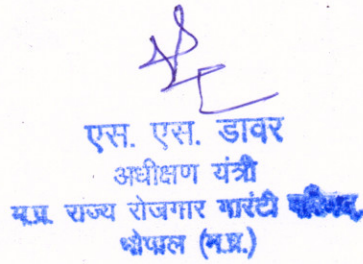 एस. एस. डावर
अधीक्षण यंत्री
म.प्र. राज्य रोजगार गारंटी परिषद,
भोपाल (म.प्र.)